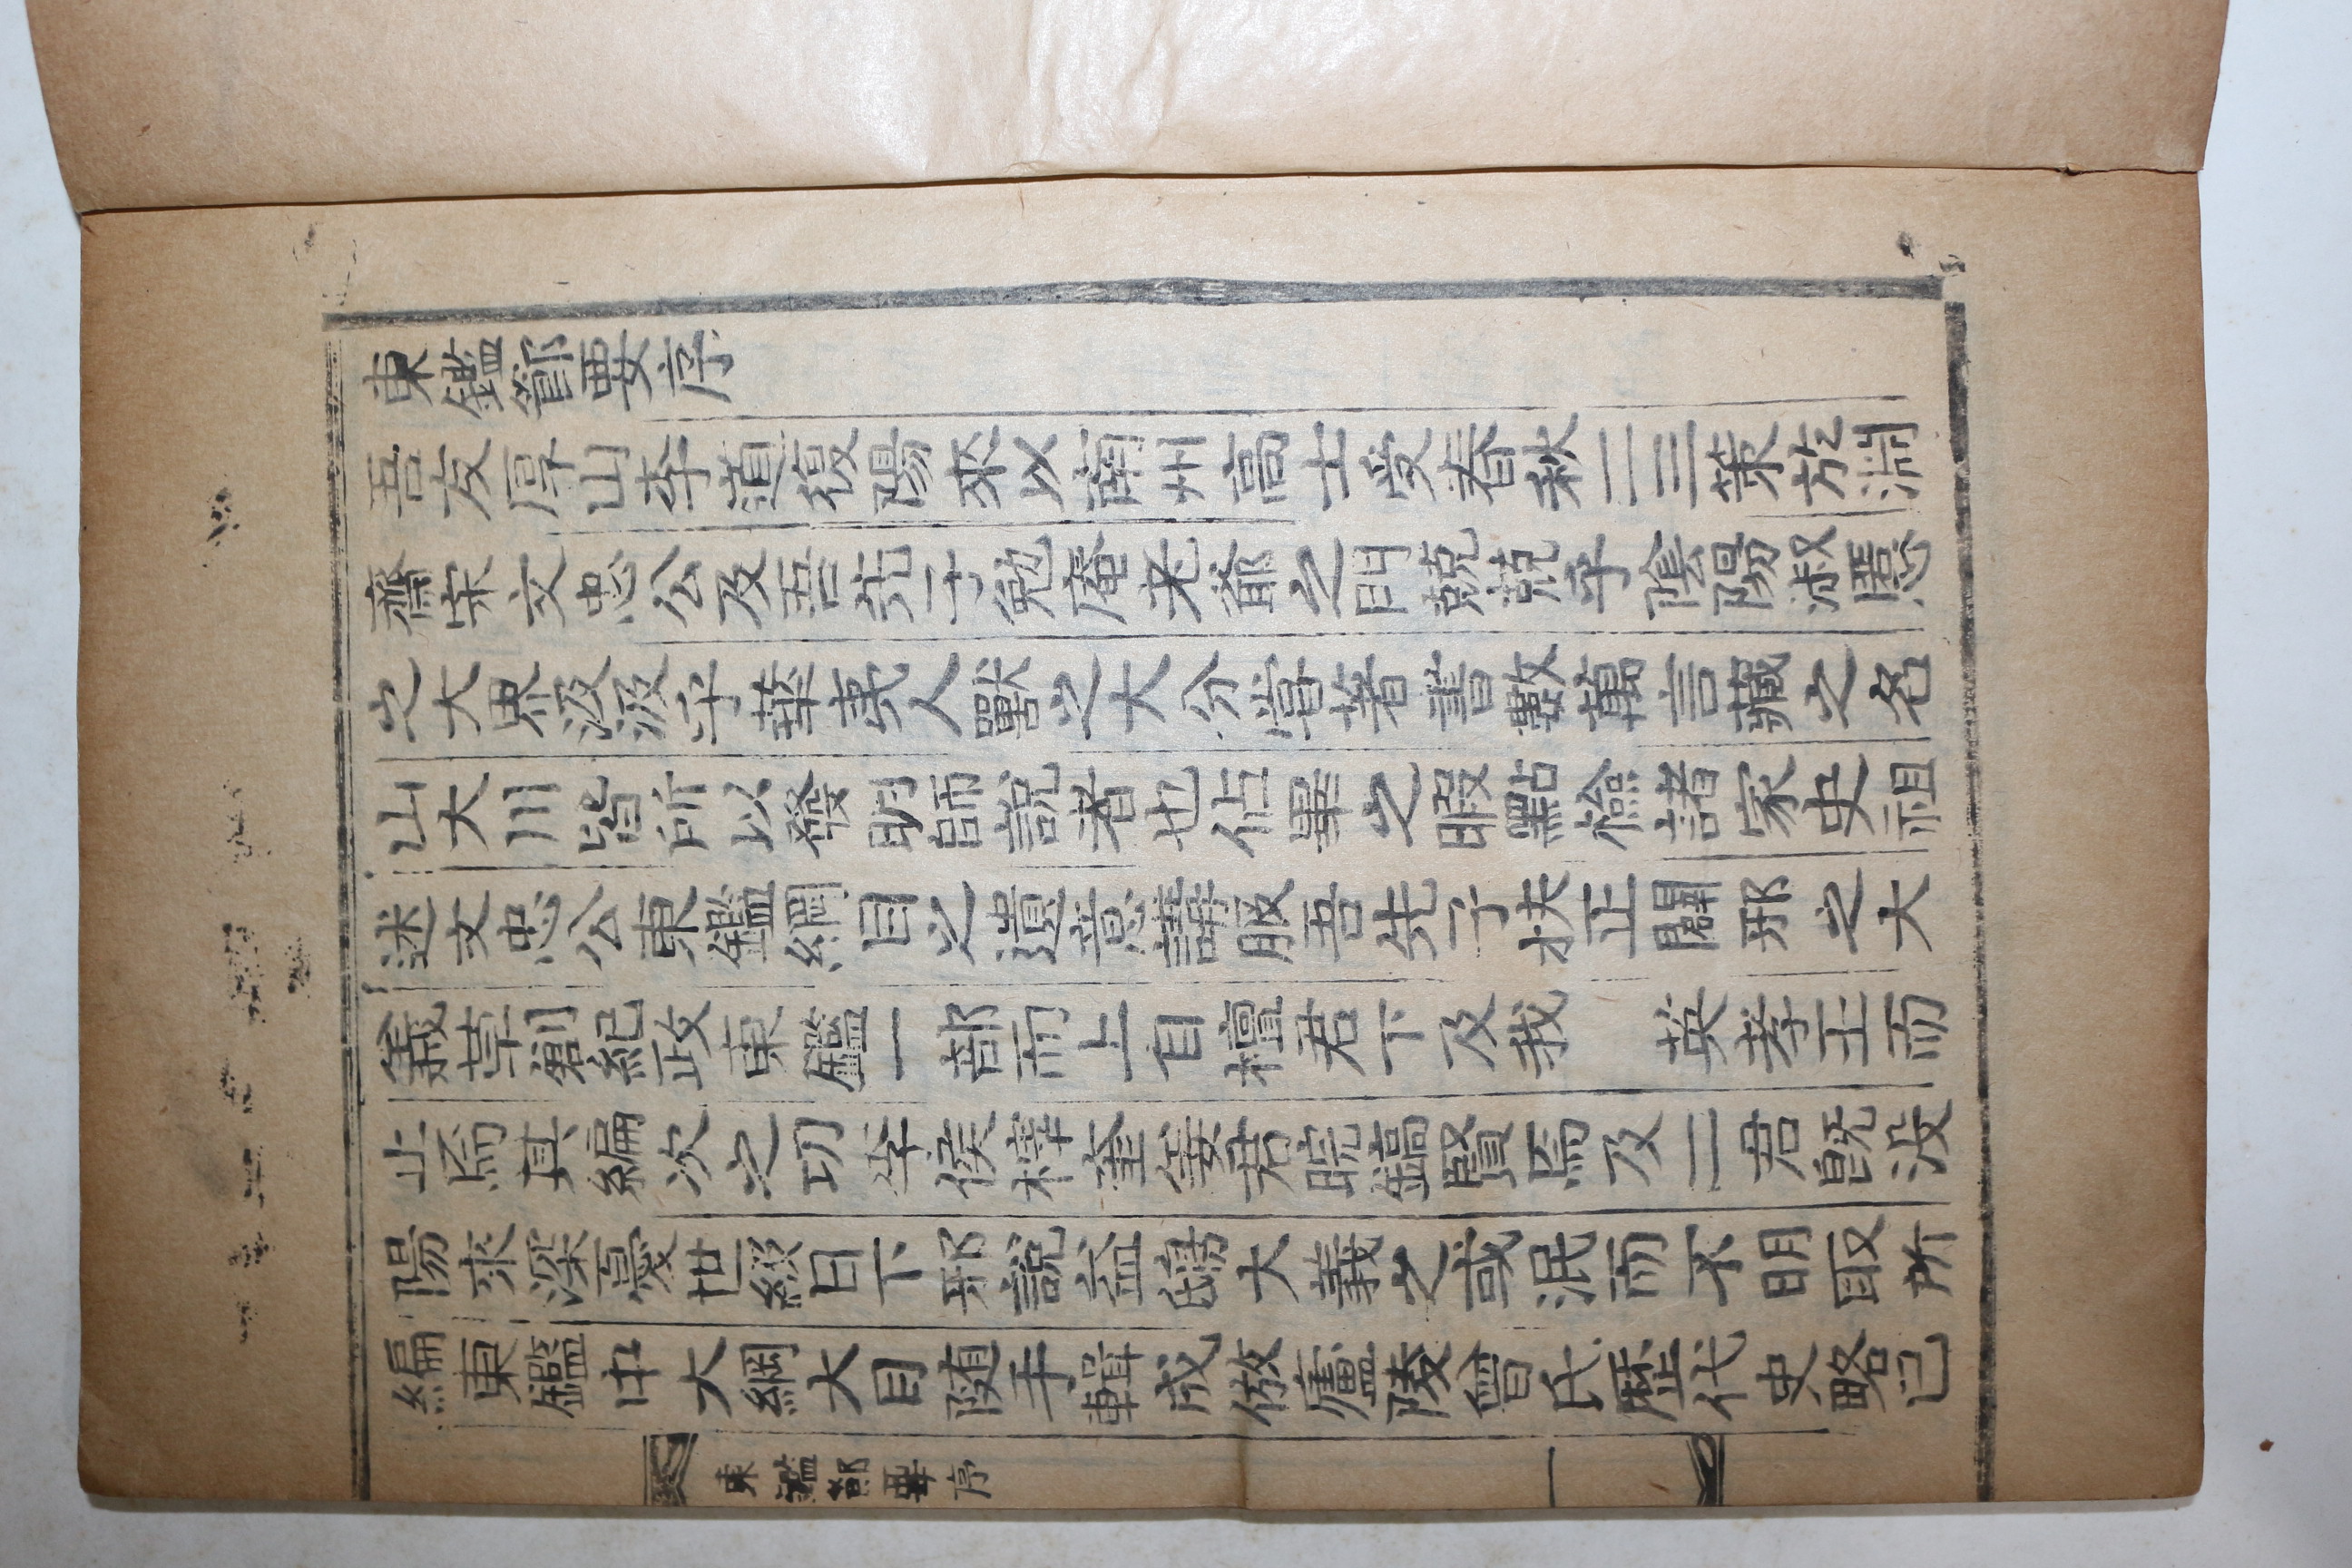 東鑑節要序
吾友厚山李道復陽來以南州高士受春秋二三策於淵
齋宋文忠公及吾先子勉庵老爺之門兢兢乎陰陽淑慝
之大界汲汲乎華夷人獸之大分嘗著書數萬言藏之名
山大川皆所以發明師說者也佔畢之暇點檢諸家史祖
述文忠公東鑑綱目之遺意講服吾先子扶正闢邪之大
義草創紀政東鑑一部而上自檀君下及我　英孝王而
止焉其編次之功李侯梓奎姜君晥鎬賢焉及二君旣沒
陽來深憂世級日下邪說益大義之或泯而不明取所
編東鑑中大綱大目随手輯成倣廬陵曾氏歷代史略已
東鑑節要序　一